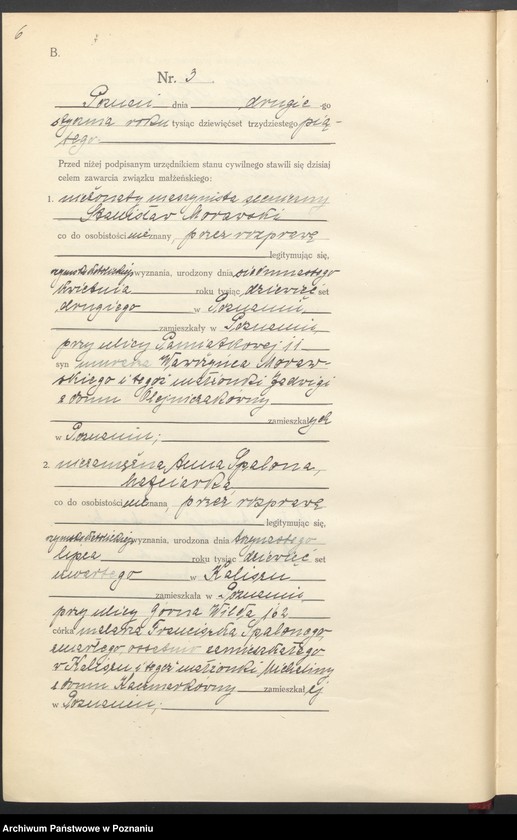 6
B.
Nr. 3
Poznań dnia drugiego
stycznia roku tysiąc dziewięćset trzydziestego pią-
tego.
Przed niżej podpisanym urzędnikiem stanu cywilnego stawili się dzisiaj
celem zawarcia związku małżeńskiego:
1. nieżonaty maszynista
Stanisław Morawski
co do osobistości nieznany, przez rozprawę
legitymując się,
rzymskokatolickiej wyznania, urodzony dnia osiemnastego
kwietnia roku tysiąc dziewięć set
drugiego w Poznaniu,
zamieszkały w Poznaniu,
przy ulicy Pamiątkowej 11
syn Wawrzyńca Moraw-
skiego i tegoż małżonki Jadwigi
z domu Olejniczakówny
zamieszkałych
w Poznaniu;
2. niezamężna, Anna Spalona,
hafciarka,
co do osobistości nieznana, przez rozprawę
legitymując się,
rzymskokatolickiej wyznania, urodzona dnia trzynastego
lipca roku tysiąc dziewięć set
czwartego w Kaliszu
zamieszkała w Poznaniu,
przy ulicy Górna Wilda 102
córka malarza Franciszka Spalonego,
zmarłego ostatnio zamieszkałego
w Kaliszu i tegoż małżonki Michaliny
z domu Kaczmarkówny zamieszkałej
w Poznaniu;
Archiwum Państwowe w Poznaniu